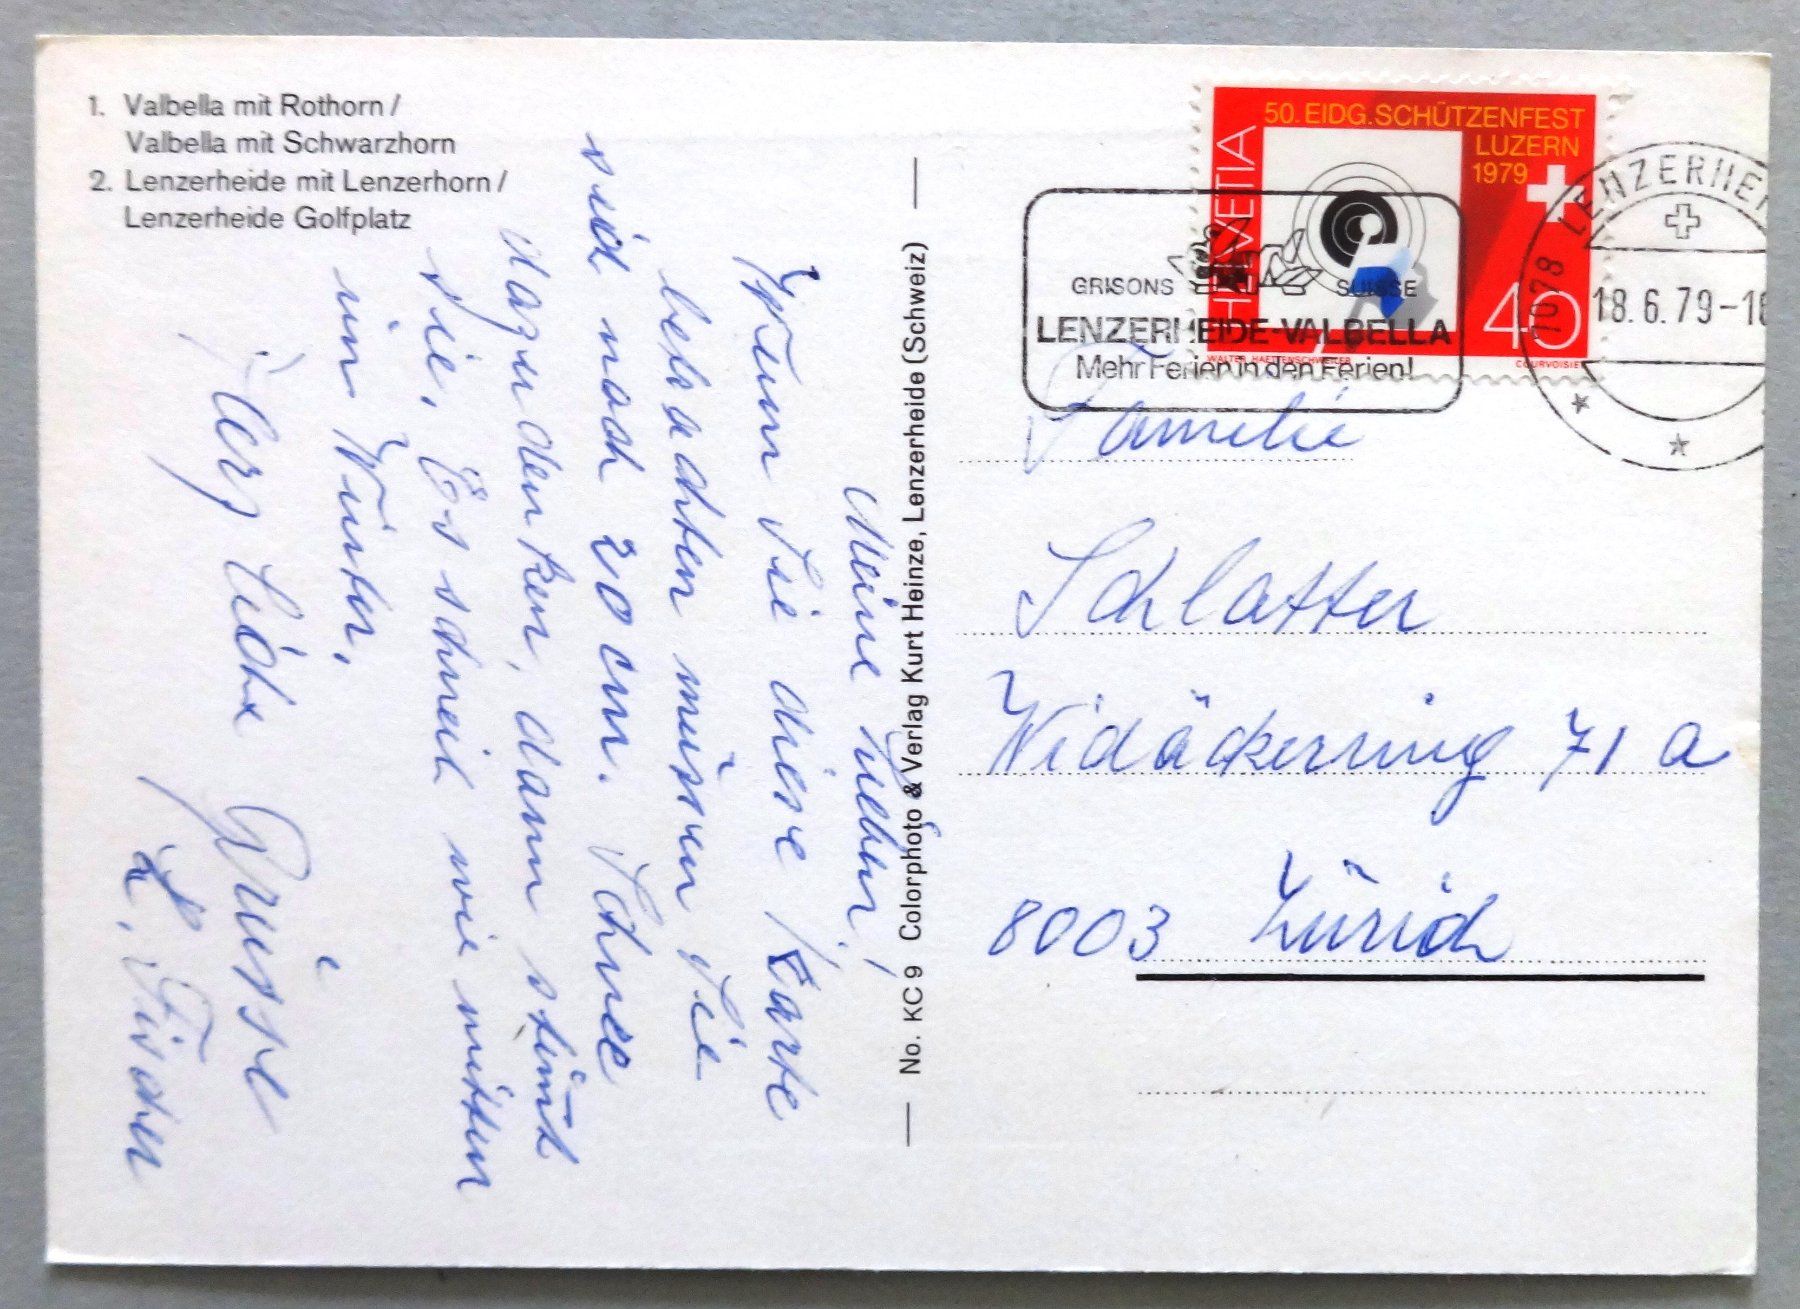 1. Valbella mit Rothorn /
Valbella mit Schwarzhorn
2. Lenzerheide mit Lenzerhorn /
Lenzerheide Golfplatz
Meine Lieben!
Wenn Sie diese Karte
betrachten müssen Sie
sich noch 20 cm. Schnee
dazu denken, dann stimmt
sie. Es schneit wie mitten
im Winter.
Herzliche Grüsse
L. Fischer
No. KC 9 Colorphoto & Verlag Kurt Heinze, Lenzerheide (Schweiz)
50. EIDG. SCHÜTZENFEST
LUZERN
1979
HELVETIA
40
WALTER HAETTENSCHWEILER
COURVOISIE
GRISONS SUISSE
LENZERHEIDE-VALBELLA
Mehr Ferien in den Ferien!
7078 LENZERHEI
18.6.79-18
Familie
Schlatter
Widäckerring 71 a
8003 Zürich